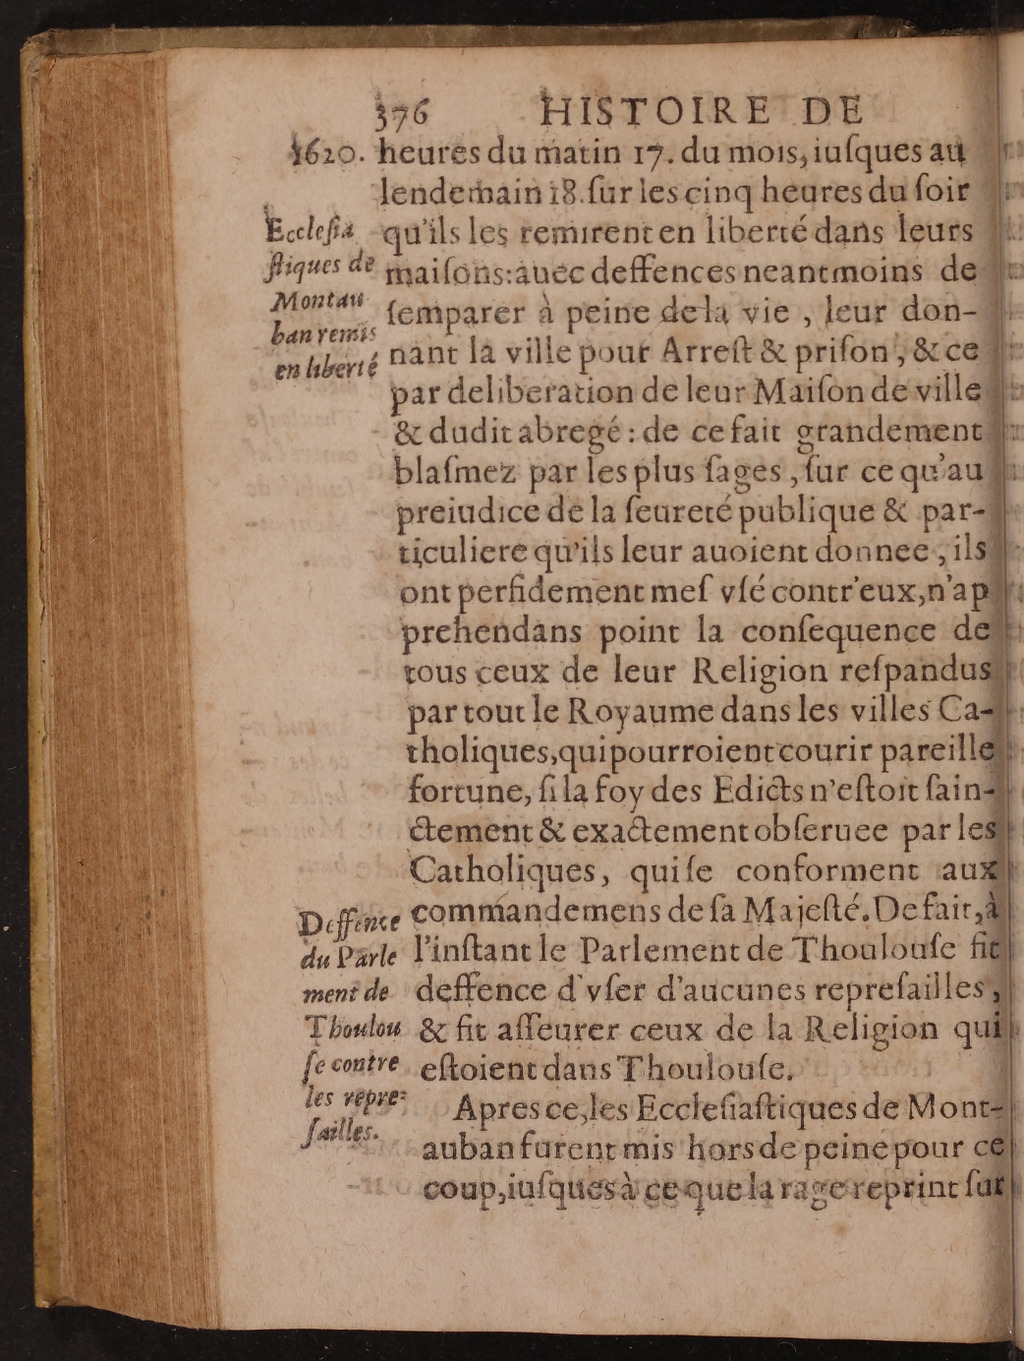 376 HISTOIRE DE
1620. heures du matin 17. du mois, iuſques au
lendemain 18. ſur les cinq heures du ſoir
qu'ils les remirent en liberté dans leurs
maiſons: auec deffences neantmoins de
ſemparer à peine de la vie, leur don-
nant la ville pour Arreſt & priſon, & ce
par deliberation de leur Maiſon de ville
& dudit abregé: de ce fait grandement
blaſmez par les plus ſages, ſur ce qu'au
preiudice de la ſeureté publique & par-
ticuliere qu'ils leur auoient donnee, ils
ont perfidement meſ vſé contr'eux, n'ap
prehendans point la conſequence de
tous ceux de leur Religion reſpandus
par tout le Royaume dans les villes Ca-
tholiques, qui pourroient courir pareille
fortune, ſi la foy des Edicts n'eſtoit ſain-
ctement & exactement obſeruee par les
Catholiques, qui ſe conforment aux
commandemens de ſa Majeſté. De fait, à
l'inſtant le Parlement de Thoulouſe fit
deffence d'vſer d'aucunes repreſailles,
& fit aſſeurer ceux de la Religion qui
eſtoient dans Thoulouſe.
Apres ce, les Eccleſiaſtiques de Mont-
auban furent mis hors de peine pour ce
coup, iuſques à ce que la rage reprint ſur
Eccleſia
ſtiques de
Montau
ban remis
en liberté
Deffence
du Parle
ment de
Thoulou
ſe contre
les repre-
ſailles.